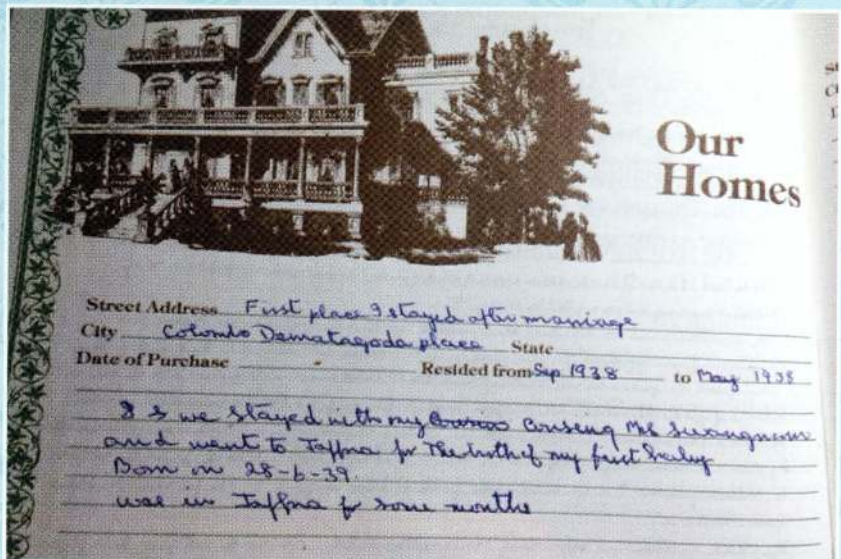 Our
Homes
Street Address First place I stayed after marriage
City Colombo Dematagoda place State
Date of Purchase Resided from Sep 1938 to May 1938
we stayed with my
and went to Jaffna for the birth of my first baby
Born on 28-6-39.
was in Jaffna for some months